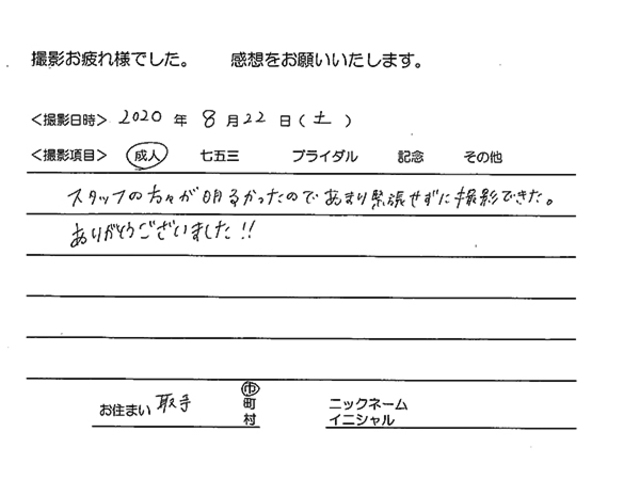 撮影お疲れ様でした。 感想をお願いいたします。
<撮影日時> 2020 年 8 月 22 日 ( 土 )
<撮影項目> 成人 七五三 ブライダル 記念 その他
スタッフの方々が明るかったのであまり緊張せずに撮影できた。
ありがとうございました!!
お住まい 取手 市 町 村
ニックネーム
イニシャル